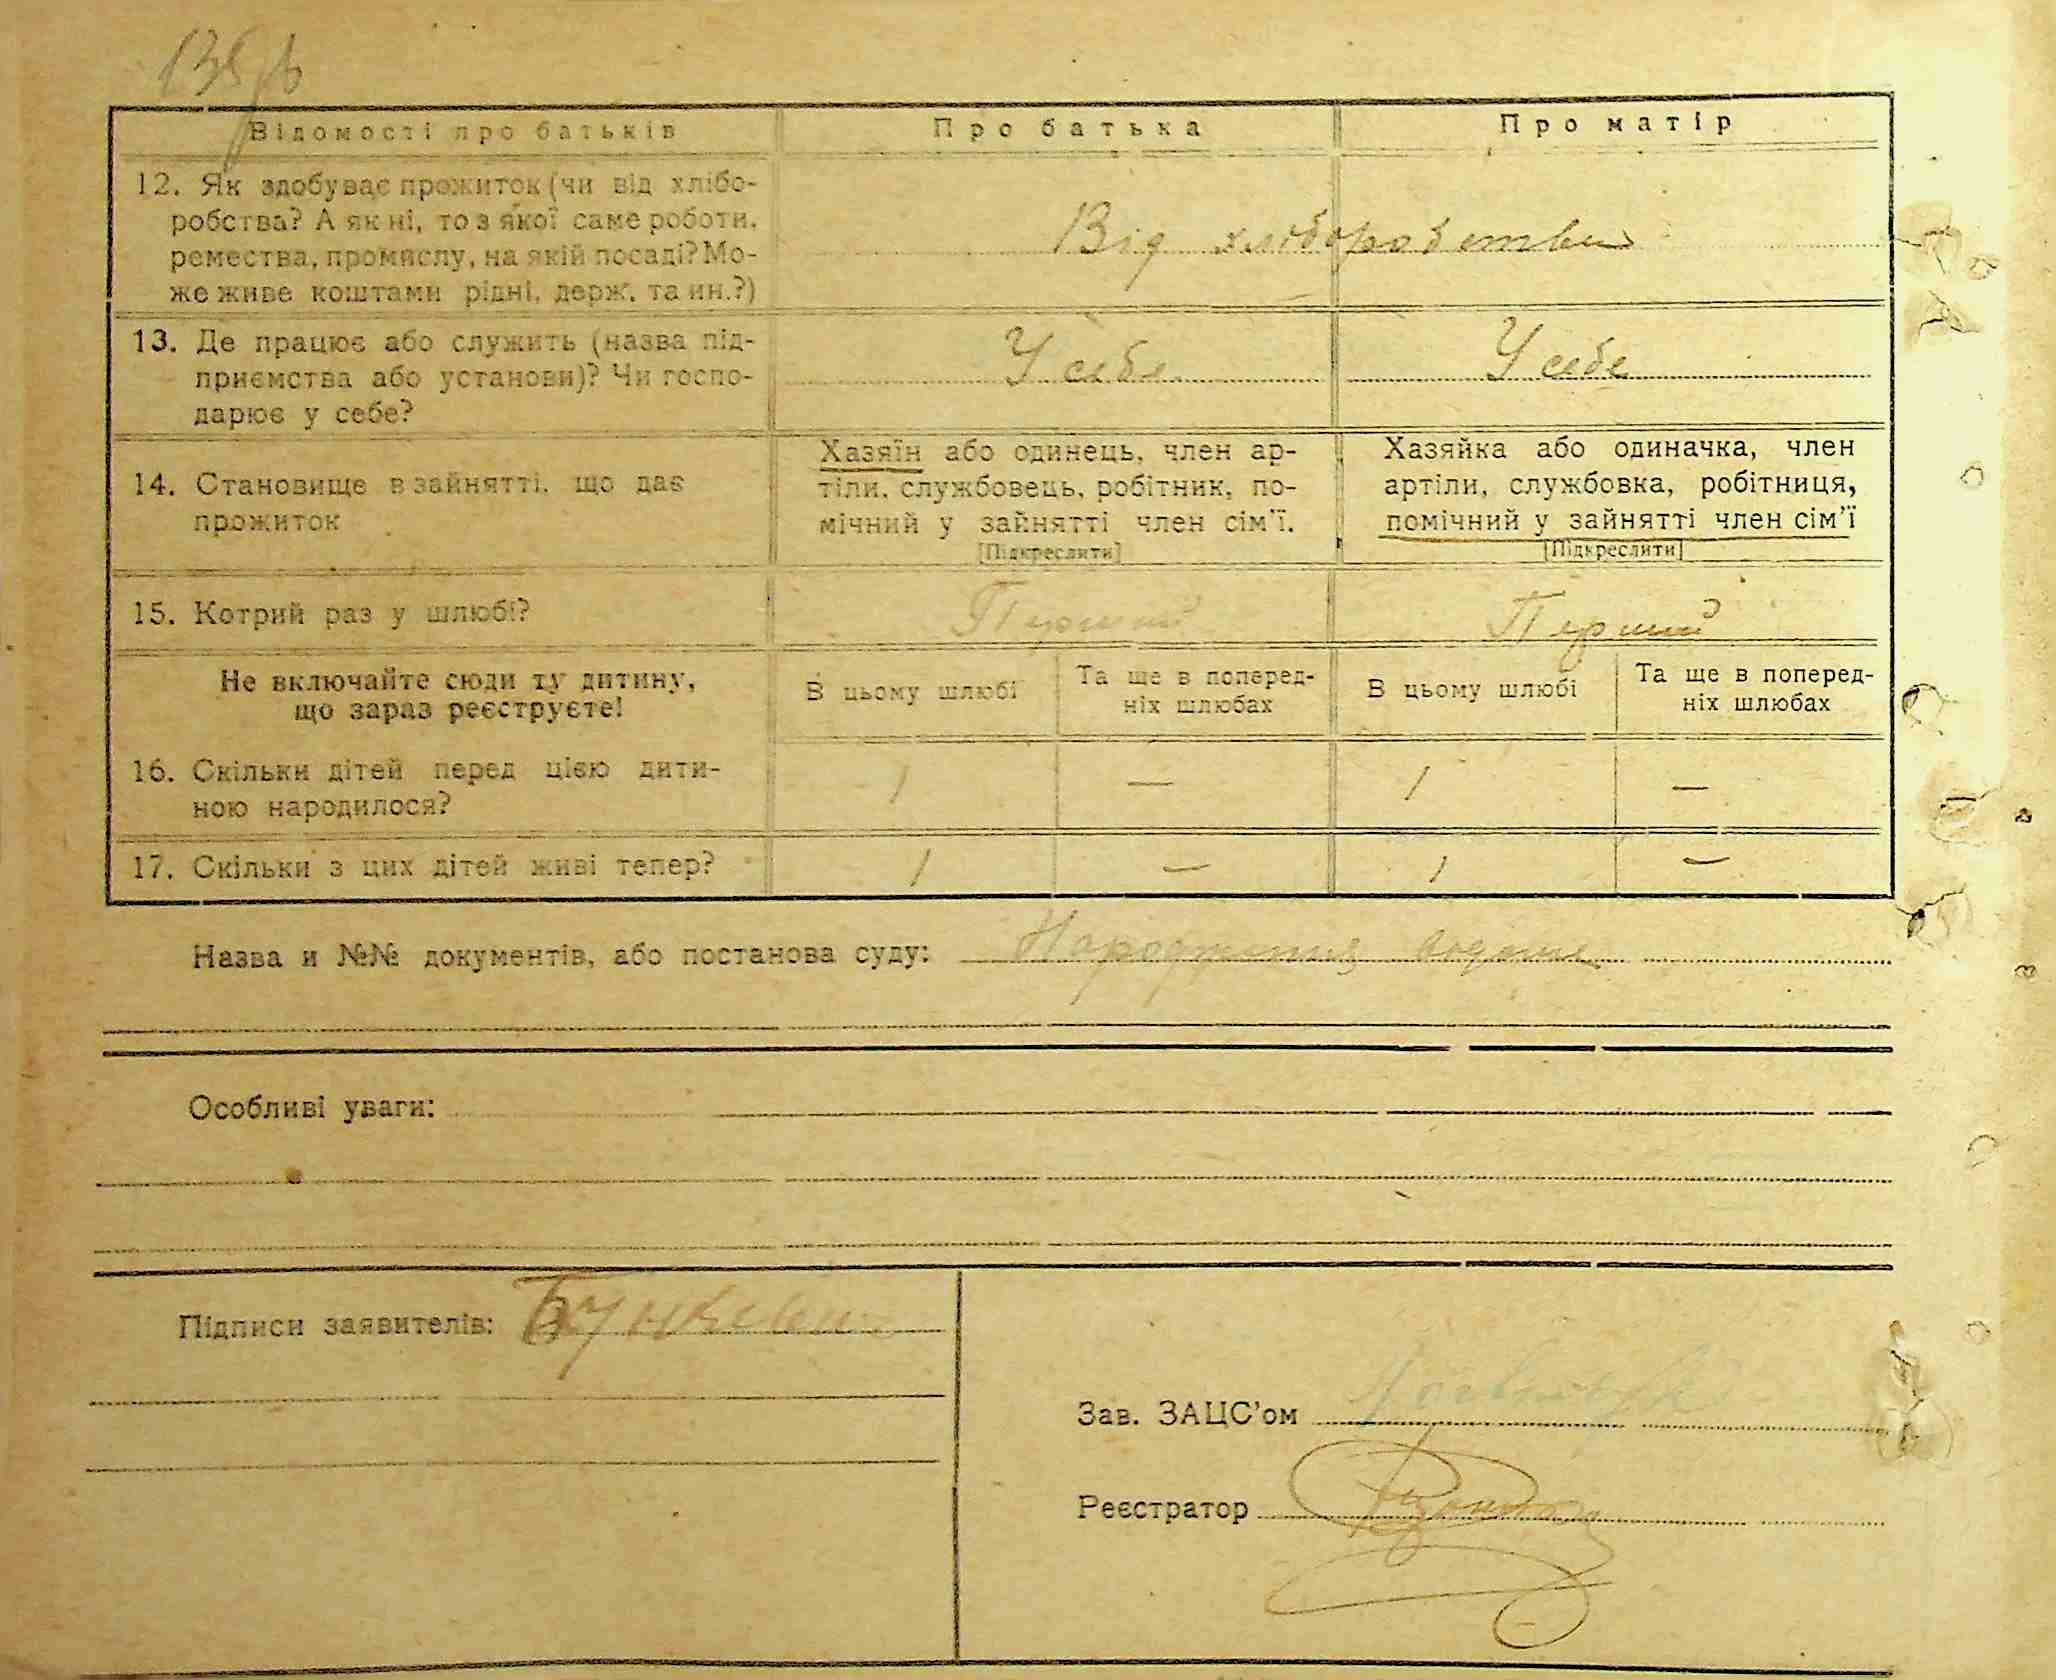 Відомості про батьків
Про батька
Про матір
12. Як здобуває прожиток (чи від хлібо-
робства? А як ні, то з якої саме роботи,
ремества, промислу, на якій посаді? Мо-
же живе коштами рідні, держ. та ин.?)
Від хліборобства
13. Де працює або служить (назва під-
приємства або установи)? Чи госпо-
дарює у себе?
У себе
У себе
14. Становище в зайнятті, що дає
прожиток
Хазяїн або одинець, член ар-
тіли, службовець, робітник, по-
мічний у зайнятті член сім'ї.
[Підкреслити]
Хазяйка або одиначка, член
артіли, службовка, робітниця,
помічний у зайнятті член сім'ї
[Підкреслити]
15. Котрий раз у шлюбі?
Перший
Перший
Не включайте сюди ту дитину,
що зараз реєструєте!
В цьому шлюбі
Та ще в поперед-
ніх шлюбах
В цьому шлюбі
Та ще в поперед-
ніх шлюбах
16. Скільки дітей перед цією дити-
ною народилося?
1 — 1 —
17. Скільки з цих дітей живі тепер?
1 — 1 —
Назва и №№ документів, або постанова суду:
Особливі уваги:
Підписи заявителів:
Зав. ЗАЦС'ом
Реєстратор